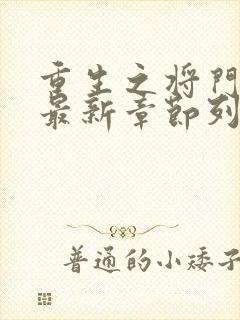 重生之将門
最新章節列
普通的小矮子